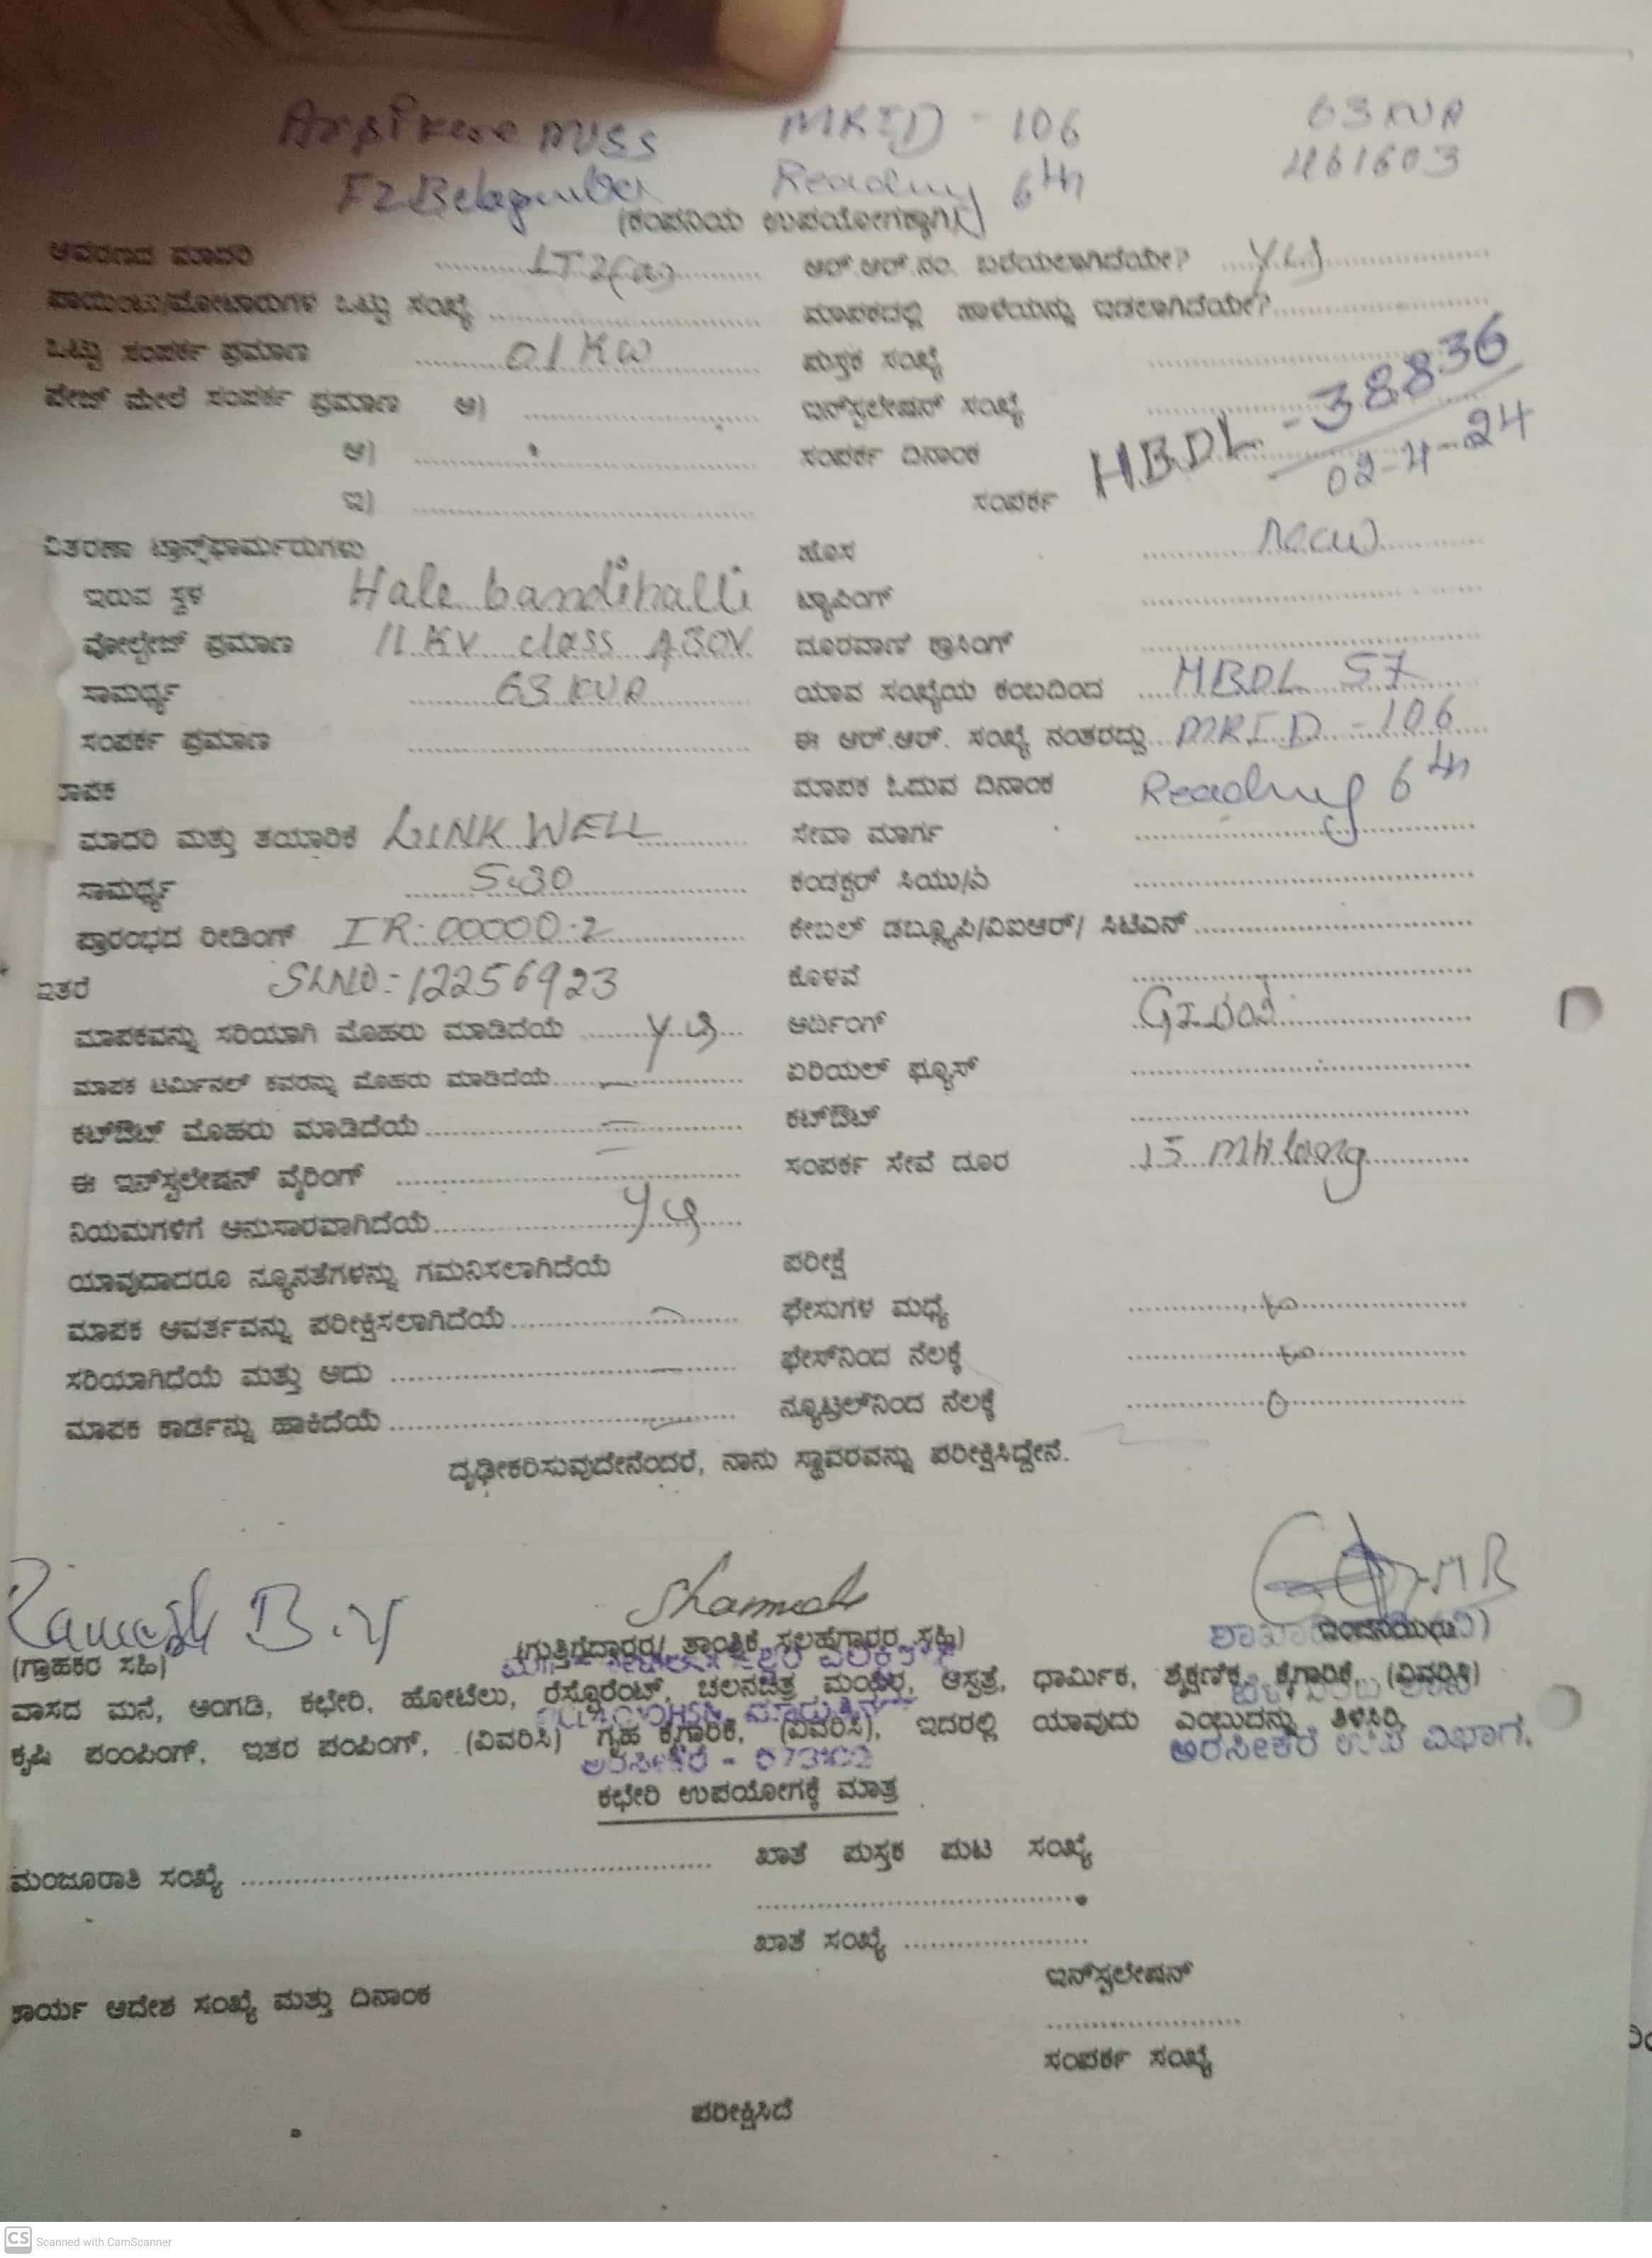 Arsikere MUSS MRID - 106 63 KVA
F2 Belagumba Reading 6th 461603
(ಕಂಪನಿಯ ಉಪಯೋಗಕ್ಕಾಗಿ)
ಆವರಣದ ಮಾದರಿ LT 2(a) ಆರ್.ಆರ್.ನಂ. ಬರೆಯಲಾಗಿದೆಯೇ?
ಪಾಯಿಂಟು/ಮೋಟಾರುಗಳ ಒಟ್ಟು ಸಂಖ್ಯೆ ಮಾಪಕದಲ್ಲಿ ಹಾಳೆಯನ್ನು ಇಡಲಾಗಿದೆಯೇ?
ಒಟ್ಟು ಸಂಪರ್ಕ ಪ್ರಮಾಣ 01 KW ಪುಸ್ತಕ ಸಂಖ್ಯೆ
ಪೇಜ್ ಮೇಲೆ ಸಂಪರ್ಕ ಪ್ರಮಾಣ ಅ) ಇನ್‌ಸ್ಟಲೇಷನ್ ಸಂಖ್ಯೆ HBDL - 38836
ಆ) ಸಂಪರ್ಕ ದಿನಾಂಕ 02-4-24
ಇ) ಸಂಪರ್ಕ
ವಿತರಣಾ ಟ್ರಾನ್ಸ್‌ಫಾರ್ಮರುಗಳು ಹೊಸ new
ಇರುವ ಸ್ಥಳ Hale bandihalli ಟ್ಯಾಪಿಂಗ್
ವೋಲ್ಟೇಜ್ ಪ್ರಮಾಣ 11 KV class ದೂರವಾಣಿ ಕ್ರಾಸಿಂಗ್
ಸಾಮರ್ಥ್ಯ 63 KVA ಯಾವ ಸಂಖ್ಯೆಯ ಕಂಬದಿಂದ HBDL 57
ಸಂಪರ್ಕ ಪ್ರಮಾಣ ಈ ಆರ್.ಆರ್. ಸಂಖ್ಯೆ ನಂತರದ್ದು MRID - 106
ಮಾಪಕ ಓದುವ ದಿನಾಂಕ Reading 6th
ಮಾದರಿ ಮತ್ತು ತಯಾರಿಕೆ LINK WELL ಸೇವಾ ಮಾರ್ಗ
ಸಾಮರ್ಥ್ಯ 5-30 ಕಂಡಕ್ಟರ್ ಸಿಯು/ಎ
ಪ್ರಾರಂಭದ ರೀಡಿಂಗ್ IR: 00000.2 ಕೇಬಲ್ ಡಬ್ಲ್ಯೂಪಿ/ವಿಐಆರ್/ ಸಿಟಿಎಸ್
ಇತರೆ SLNO: 12256923 ಕೊಳವೆ
ಮಾಪಕವನ್ನು ಸರಿಯಾಗಿ ಮೊಹರು ಮಾಡಿದೆಯೆ ಅರ್ದಿಂಗ್
ಮಾಪಕ ಟರ್ಮಿನಲ್ ಕವರನ್ನು ಮೊಹರು ಮಾಡಿದೆಯೆ ಏರಿಯಲ್ ಫ್ಯೂಸ್
ಕಟ್‌ಔಟ್ ಮೊಹರು ಮಾಡಿದೆಯೆ ಕಟ್‌ಔಟ್
ಈ ಇನ್‌ಸ್ಟಲೇಷನ್ ವೈರಿಂಗ್ ಸಂಪರ್ಕ ಸೇವೆ ದೂರ 15 Mtr long
ನಿಯಮಗಳಿಗೆ ಅನುಸಾರವಾಗಿದೆಯೆ
ಯಾವುದಾದರೂ ನ್ಯೂನತೆಗಳನ್ನು ಗಮನಿಸಲಾಗಿದೆಯೆ ಪರೀಕ್ಷೆ
ಮಾಪಕ ಆವರ್ತವನ್ನು ಪರೀಕ್ಷಿಸಲಾಗಿದೆಯೆ ಫೇಸುಗಳ ಮಧ್ಯೆ
ಸರಿಯಾಗಿದೆಯೆ ಮತ್ತು ಅದು ಫೇಸ್‌ನಿಂದ ನೆಲಕ್ಕೆ
ಮಾಪಕ ಕಾರ್ಡನ್ನು ಹಾಕಿದೆಯೆ ನ್ಯೂಟ್ರಲ್‌ನಿಂದ ನೆಲಕ್ಕೆ 0
ದೃಢೀಕರಿಸುವುದೇನೆಂದರೆ, ನಾನು ಸ್ಥಾವರವನ್ನು ಪರೀಕ್ಷಿಸಿದ್ದೇನೆ.
Ramesh B.Y
(ಗ್ರಾಹಕರ ಸಹಿ) (ಗುತ್ತಿಗೆದಾರರ/ ತಾಂತ್ರಿಕ ಸಲಹೆಗಾರರ ಸಹಿ)
ವಾಸದ ಮನೆ, ಅಂಗಡಿ, ಕಛೇರಿ, ಹೋಟೆಲು, ರೆಸ್ಟೊರೆಂಟ್, ಚಲನಚಿತ್ರ ಮಂದಿರ, ಆಸ್ಪತ್ರೆ, ಧಾರ್ಮಿಕ, ಶೈಕ್ಷಣಿಕ, ಕೈಗಾರಿಕೆ, (ವಿವರಿಸಿ)
ಕೃಷಿ ಪಂಪಿಂಗ್, ಇತರ ಪಂಪಿಂಗ್, (ವಿವರಿಸಿ) ಗೃಹ ಕೈಗಾರಿಕೆ, (ವಿವರಿಸಿ), ಇದರಲ್ಲಿ ಯಾವುದು ಎಂಬುದನ್ನು ತಿಳಿಸಿರಿ
ಅರಸೀಕೆರೆ ವಿಭಾಗ.
ಕಛೇರಿ ಉಪಯೋಗಕ್ಕೆ ಮಾತ್ರ
ಮಂಜೂರಾತಿ ಸಂಖ್ಯೆ ಖಾತೆ ಪುಸ್ತಕ ಪುಟ ಸಂಖ್ಯೆ
ಖಾತೆ ಸಂಖ್ಯೆ
ಇನ್‌ಸ್ಟಲೇಷನ್
ಕಾರ್ಯ ಆದೇಶ ಸಂಖ್ಯೆ ಮತ್ತು ದಿನಾಂಕ
ಸಂಪರ್ಕ ಸಂಖ್ಯೆ
ಪರೀಕ್ಷಿಸಿದೆ
CS Scanned with CamScanner